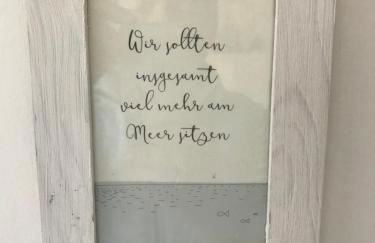 Wir sollten
insgesamt
viel mehr am
Meer sitzen